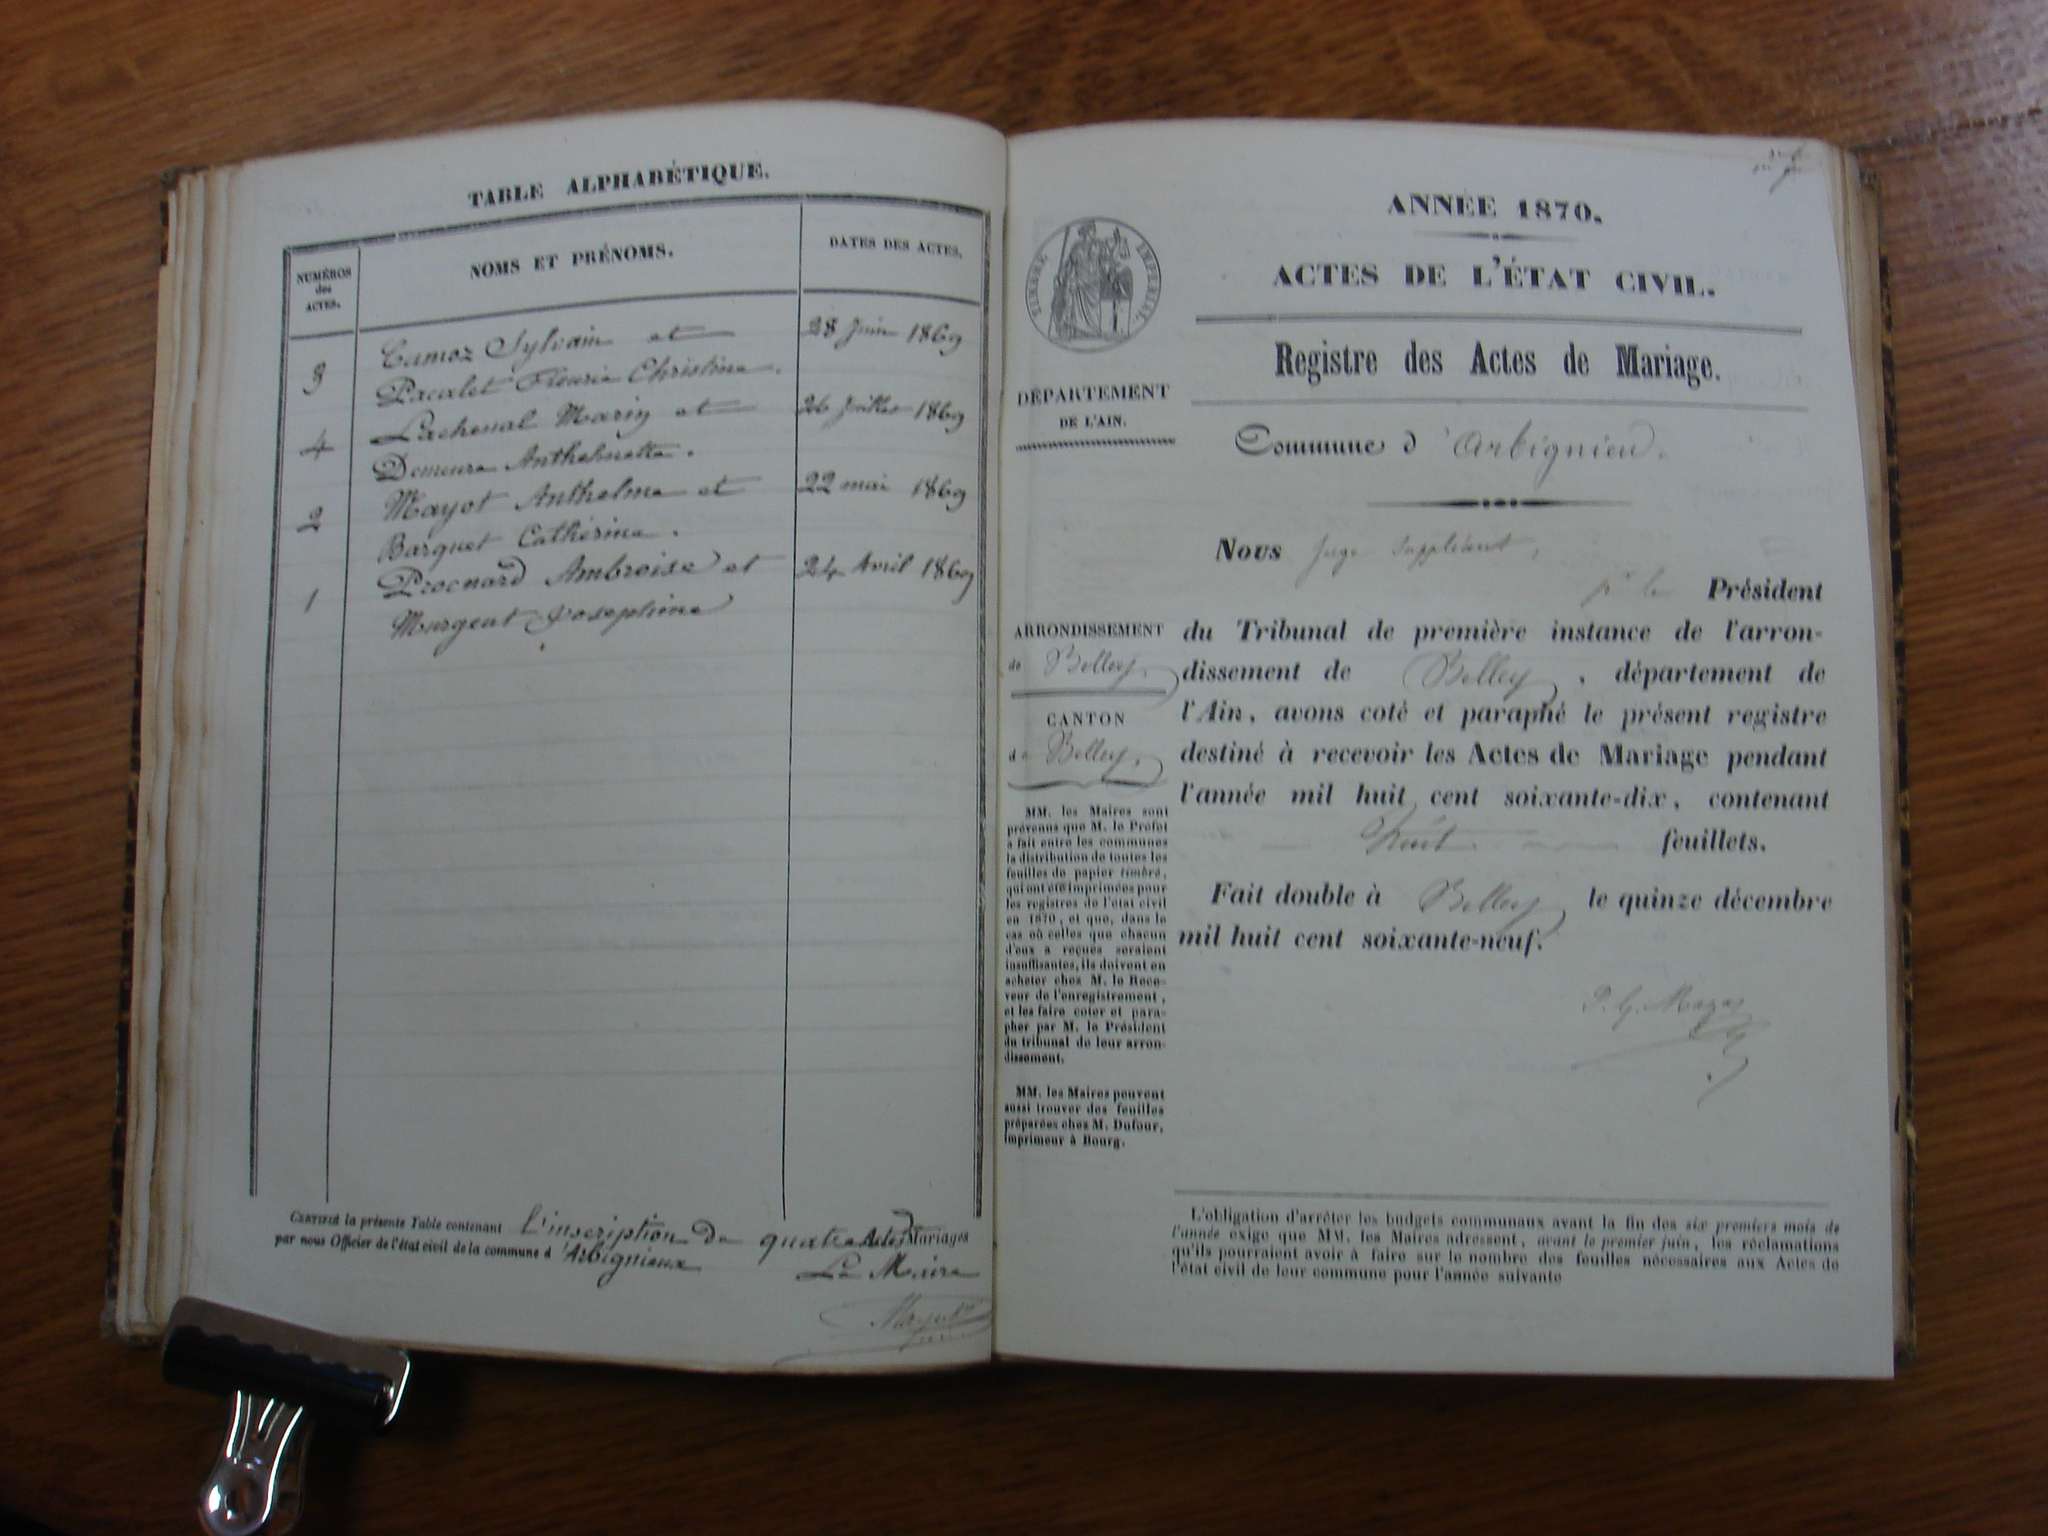 TABLE ALPHABÉTIQUE.
NUMÉROS
des
ACTES.
NOMS ET PRÉNOMS.
DATES DES ACTES.
3 Camoz Sylvain et 28 Juin 1869
Pacalet Fleurie Christine.
4 Lachenal Marin et 26 Juillet 1869
Demeure Anthelmette.
2 Mayot Anthelme et 22 mai 1869
Barquet Catherine.
1 Ambroise et 24 Avril 1869
Josephine
CERTIFIÉ la présente Table contenant l'inscription de quatre Actes de Mariages
par nous Officier de l'état civil de la commune d'Arbignieux
Le Maire
TIMBRE IMPÉRIAL
DÉPARTEMENT
DE L'AIN.
ARRONDISSEMENT
de Belley.
CANTON
de Belley.
MM. les Maires sont
prévenus que M. le Préfet
a fait entre les communes
la distribution de toutes les
feuilles de papier timbré,
qui ont été imprimées pour
les registres de l'état civil
en 1870, et que, dans le
cas où celles que chacun
d'eux a reçues seraient
insuffisantes, ils doivent en
acheter chez M. le Rece-
veur de l'enregistrement,
et les faire coter et para-
pher par M. le Président
du tribunal de leur arron-
dissement.
MM. les Maires peuvent
aussi trouver des feuilles
préparées chez M. Dufour,
imprimeur à Bourg.
ANNÉE 1870.
ACTES DE L'ÉTAT CIVIL.
Registre des Actes de Mariage.
Commune d'Arbignieu.
Nous Juge Suppléant,
pr le Président
du Tribunal de première instance de l'arron-
dissement de Belley, département de
l'Ain, avons coté et paraphé le présent registre
destiné à recevoir les Actes de Mariage pendant
l'année mil huit cent soixante-dix, contenant
Huit feuillets.
Fait double à Belley le quinze décembre
mil huit cent soixante-neuf.
L'obligation d'arrêter les budgets communaux avant la fin des six premiers mois de
l'année exige que MM. les Maires adressent, avant le premier juin, les réclamations
qu'ils pourraient avoir à faire sur le nombre des feuilles nécessaires aux Actes de
l'état civil de leur commune pour l'année suivante